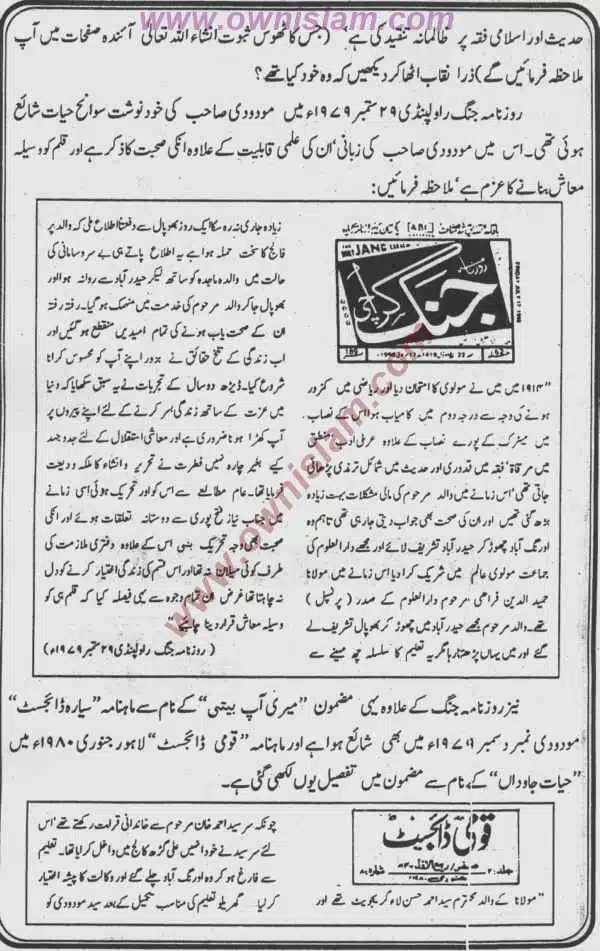 www.ownislam.com
حدیث اور اسلامی فقہ پر ظالمانہ تنقید کی ہے، (جس کا ٹھوس ثبوت انشاء اللہ تعالیٰ آئندہ صفحات میں آپ
ملاحظہ فرمائیں گے) ذرا نقاب اٹھا کر دیکھیں کہ وہ خود کیا تھے؟
روزنامہ جنگ راولپنڈی ۲۹ ستمبر ۱۹۷۹ء میں مودودی صاحب کی خودنوشت سوانح حیات شائع
ہوئی تھی۔ اس میں مودودی صاحب کی زبانی ان کی علمی قابلیت کے علاوہ انکی صحبت کا ذکر ہے اور قلم کو وسیلہ
معاش بنانے کا عزم ہے، ملاحظہ فرمائیں:
JANG
روزنامہ
جنگ
کراچی
"۱۹۱۴ میں میں نے مولوی کا امتحان دیا اور ریاضی میں کمزور
ہونے کی وجہ سے درجہ دوم میں کامیاب ہوا اس کے نصاب
میں میٹرک کے پورے نصاب کے علاوہ عربی ادب، منطق
میں مرقاة، فقہ میں قدوری اور حدیث میں شمائل ترمذی پڑھائی
جاتی تھی، اس زمانے میں والد مرحوم کی مالی مشکلات بہت زیادہ
بڑھ گئی تھیں اور ان کی صحت بھی جواب دیتی جا رہی تھی تاہم وہ
اورنگ آباد چھوڑ کر حیدر آباد تشریف لائے اور مجھے دارالعلوم کی
جماعت مولوی عالم میں شریک کرا دیا اس زمانے میں مولانا
حمید الدین فراھی مرحوم دارالعلوم کے صدر (پرنسپل)
تھے۔ والد مرحوم مجھے حیدر آباد میں چھوڑ کر بھوپال تشریف لے
گئے اور میں یہاں پڑھتا رہا مگر یہ تعلیم کا سلسلہ چھ مہینے سے
زیادہ جاری نہ رہ سکا ایک روز بھوپال سے دفعتاً اطلاع ملی کہ والد پر
فالج کا سخت حملہ ہوا ہے یہ اطلاع پاتے ہی بے سروسامانی کی
حالت میں والدہ ماجدہ کو ساتھ لیکر حیدر آباد سے روانہ ہوا اور
بھوپال جا کر والد مرحوم کی خدمت میں منہمک ہو گیا۔ رفتہ رفتہ
ان کے صحت یاب ہونے کی تمام امیدیں منقطع ہو گئیں اور
اب زندگی کے تلخ حقائق نے بزور اپنے آپ کو محسوس کرانا
شروع کیا۔ ڈیڑھ دو سال کے تجربات نے یہ سبق سکھایا کہ دنیا
میں عزت کے ساتھ زندگی بسر کرنے کے لئے اپنے پیروں پر
آپ کھڑا ہونا ضروری ہے اور معاشی استقلال کے لئے جدوجہد
کیے بغیر چارہ نہیں فطرت نے تحریر و انشاء کا ملکہ ودیعت
فرمایا تھا۔ عام مطالعے سے اس کو اور تحریک ہوئی اسی زمانے
میں جناب نیاز فتح پوری سے دوستانہ تعلقات ہوئے اور انکی
صحبت بھی وجہ تحریک بنی اس کے علاوہ دفتری ملازمت کی
طرف کوئی میلان نہ تھا اور اس قسم کی زندگی اختیار کرنے کو دل
نہ چاہتا تھا غرض ان تمام وجوہ سے یہی فیصلہ کیا کہ قلم ہی کو
وسیلہ معاش قرار دینا چاہئے"
(روزنامہ جنگ راولپنڈی ۲۹ ستمبر ۱۹۷۹ء)
www.ownislam.com
نیز روزنامہ جنگ کے علاوہ یہی مضمون "میری آپ بیتی" کے نام سے ماہنامہ "سیارہ ڈائجسٹ"
مودودی نمبر دسمبر ۱۹۷۹ء میں بھی شائع ہوا ہے اور ماہنامہ "قومی ڈائجسٹ" لاہور جنوری ۱۹۸۰ء میں
"حیات جاوداں" کے نام سے مضمون میں تفصیل یوں لکھی گئی ہے۔
قومی ڈائجسٹ
"مولانا کے والد محترم سید احمد حسن لاء گریجویٹ تھے اور
چونکہ سرسید احمد خان مرحوم سے خاندانی قرابت رکھتے تھے اس
لئے سرسید نے خود انہیں علی گڑھ کالج میں داخل کرایا تھا۔ تعلیم
سے فارغ ہو کر وہ اورنگ آباد چلے گئے اور وکالت کا پیشہ اختیار
کر لیا گھریلو تعلیم کی مناسب تکمیل کے بعد سید مودودی کو